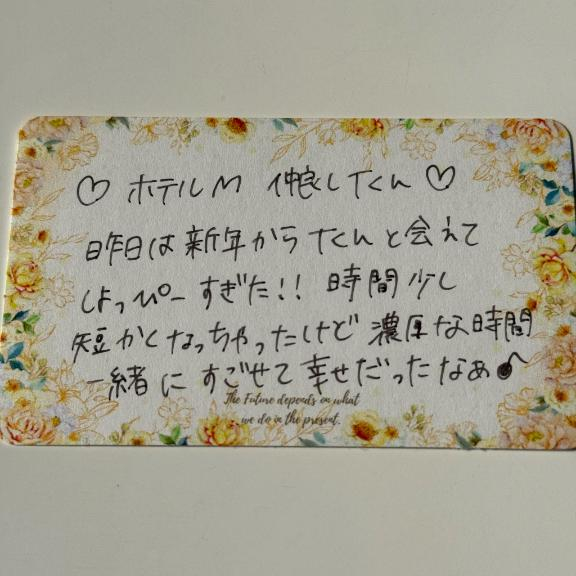 ♡ ホテルM 仲良しTくん ♡
昨日は新年からTくんと会えて
しよっぴーすぎた!! 時間少し
短かくなっちゃったけど 濃厚な時間
一緒にすごせて幸せだったなあ♪
The Future depends on what
we do in the present.